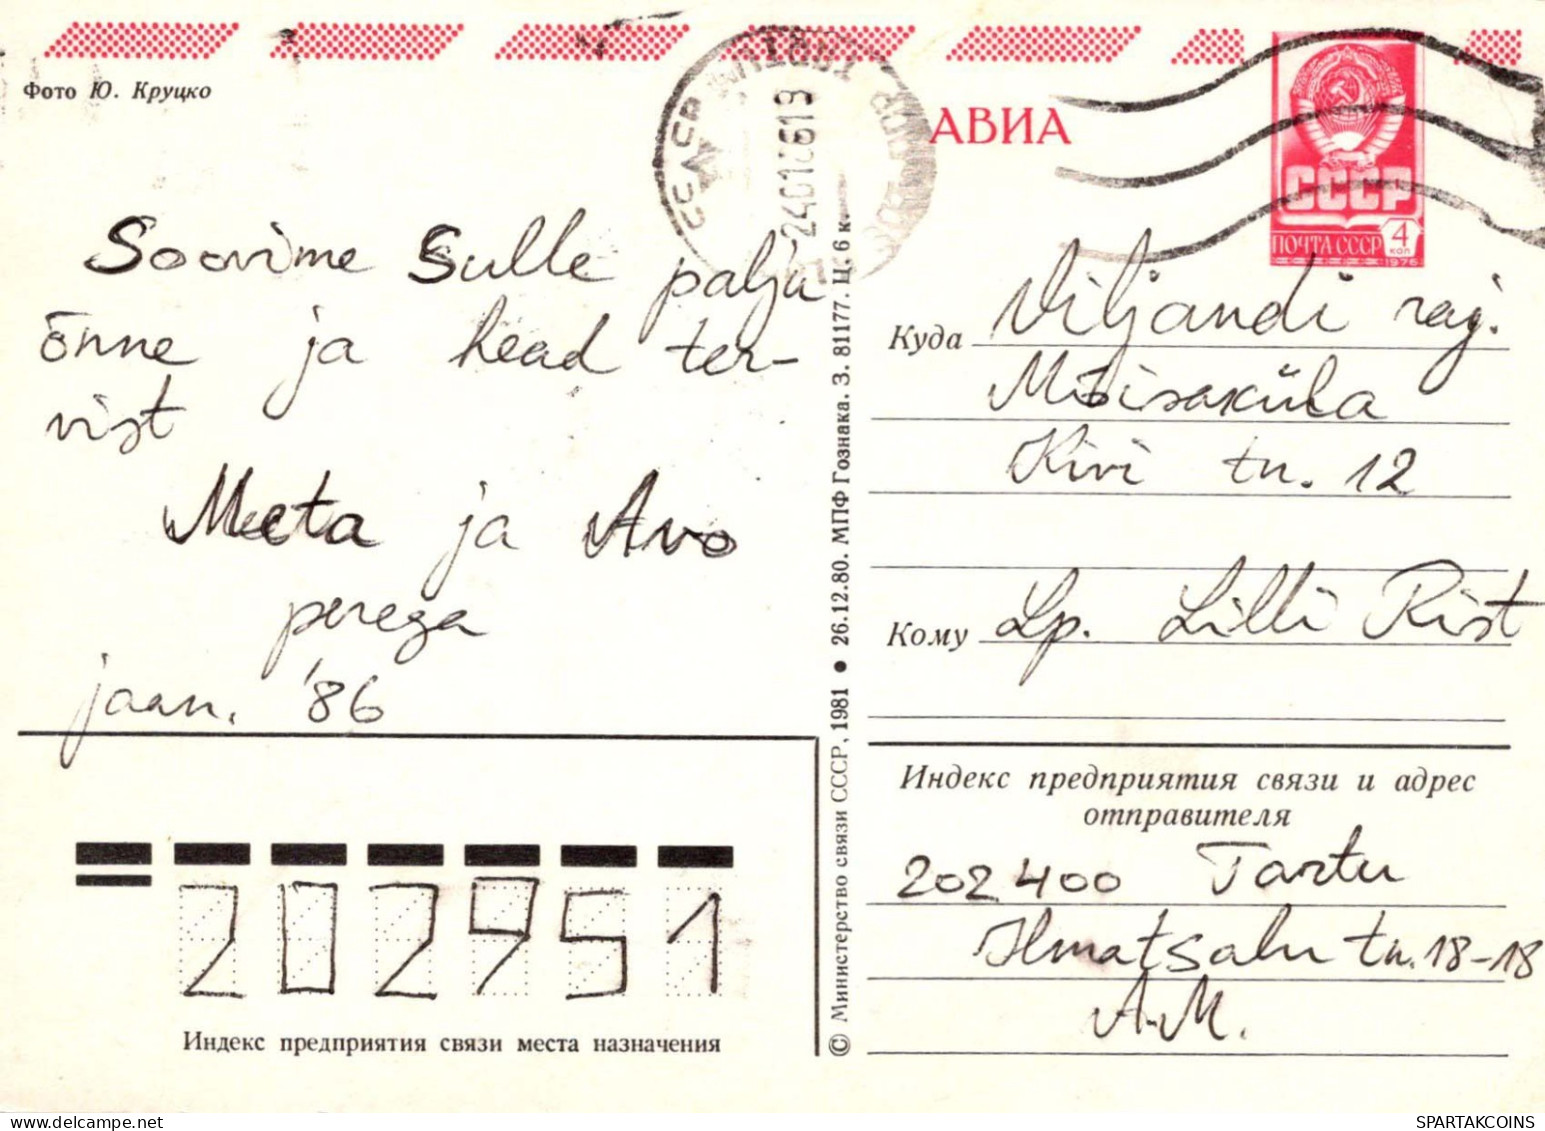 Фото Ю. Круцко
АВИА
СССР
ПОЧТА СССР 4 КОП
1976
Soovime Sulle palju
õnne ja head ter-
vist
Meeta ja Avo
perega
jaan. '86
Куда Viljandi raj.
Mõisaküla
Kivi tn. 12
Кому Lp. Lilli Rist
© Министерство связи СССР, 1981 ● 26.12.80. МПФ Гознака. З. 81177. Ц. 6 к.
Индекс предприятия связи и адрес
отправителя
202400 Tartu
Ilmatsalu tn. 18-18
A.M.
202951
Индекс предприятия связи места назначения
SPARTAKCOINS